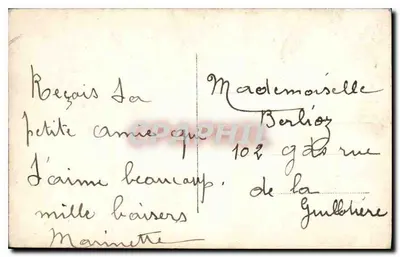 Reçois ta
petite amie qui
t'aime beaucoup.
mille baisers
Marinette
Mademoiselle
Berlioz
102 gde rue
de la
Guillotière
CPAPHIL